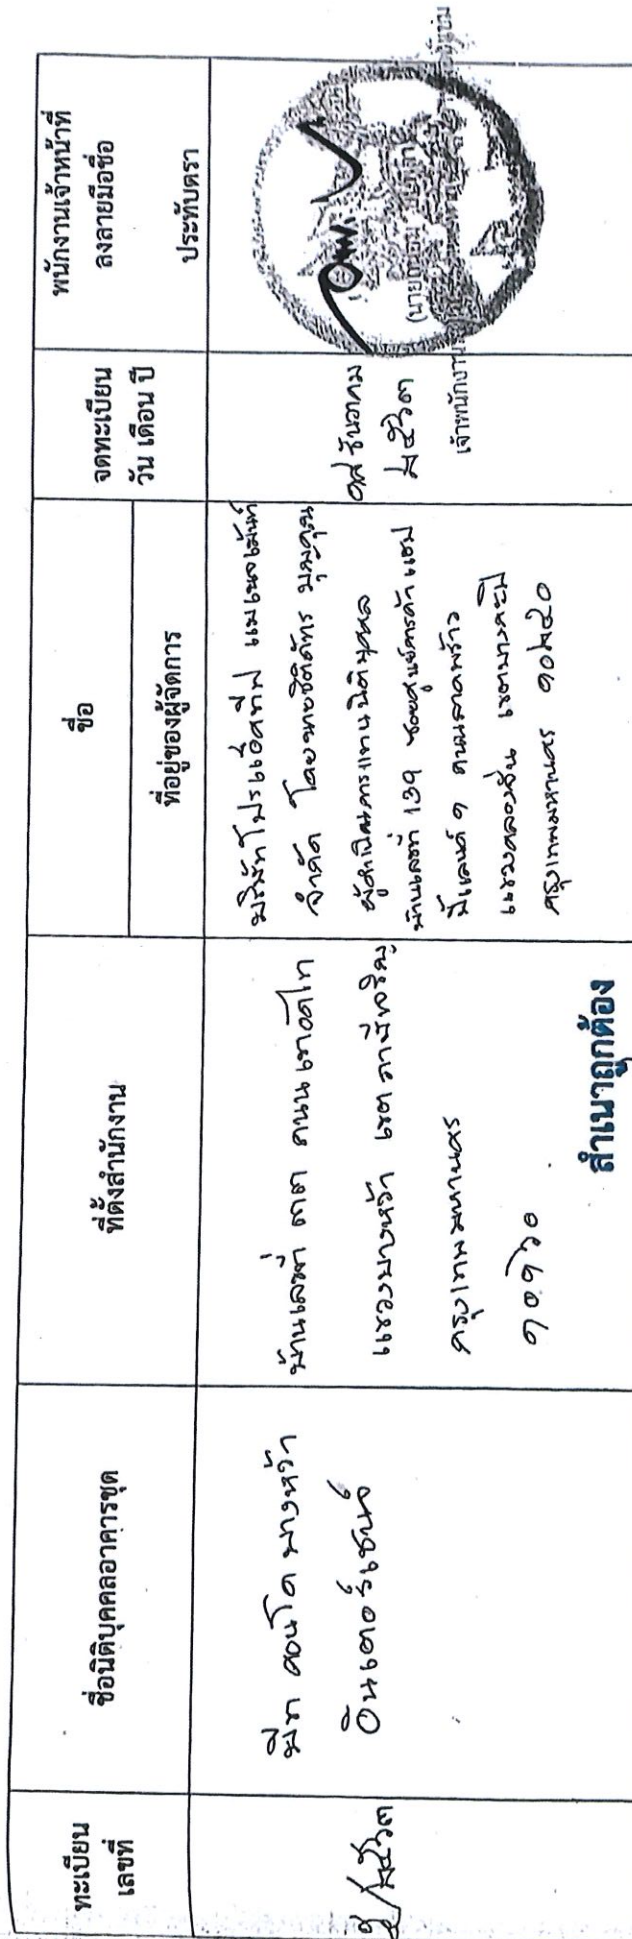 ทะเบียน
เลขที่
ชื่อนิติบุคคลอาคารชุด
ที่ตั้งสำนักงาน
ชื่อ
ที่อยู่ของผู้จัดการ
จดทะเบียน
วัน เดือน ปี
พนักงานเจ้าหน้าที่
ลงลายมือชื่อ
ประทับตรา
/๒๕๖๓
มีท คอนโด บางหว้า
อินเตอร์เชนจ์
บ้านเลขที่ ๓๓ ถนนเทอดไท
แขวงบางหว้า เขต ภาษีเจริญ
กรุงเทพมหานคร
๑๐๑๖๐
บริษัท โปรแอคทีฟ แมเนจเม้นท์
จำกัด โดย
ผู้ดำเนินการแทนนิติบุคคล
บ้านเลขที่ 139 ซอยศูนย์การค้า แฮป
ปี้แลนด์ ๑ ถนนลาดพร้าว
แขวงคลองจั่น เขตบางกะปิ
กรุงเทพมหานคร ๑๐๒๔๐
ธันวาคม
๒๕๖๓
(นาย
เจ้าพนักงาน
สำเนาถูกต้อง